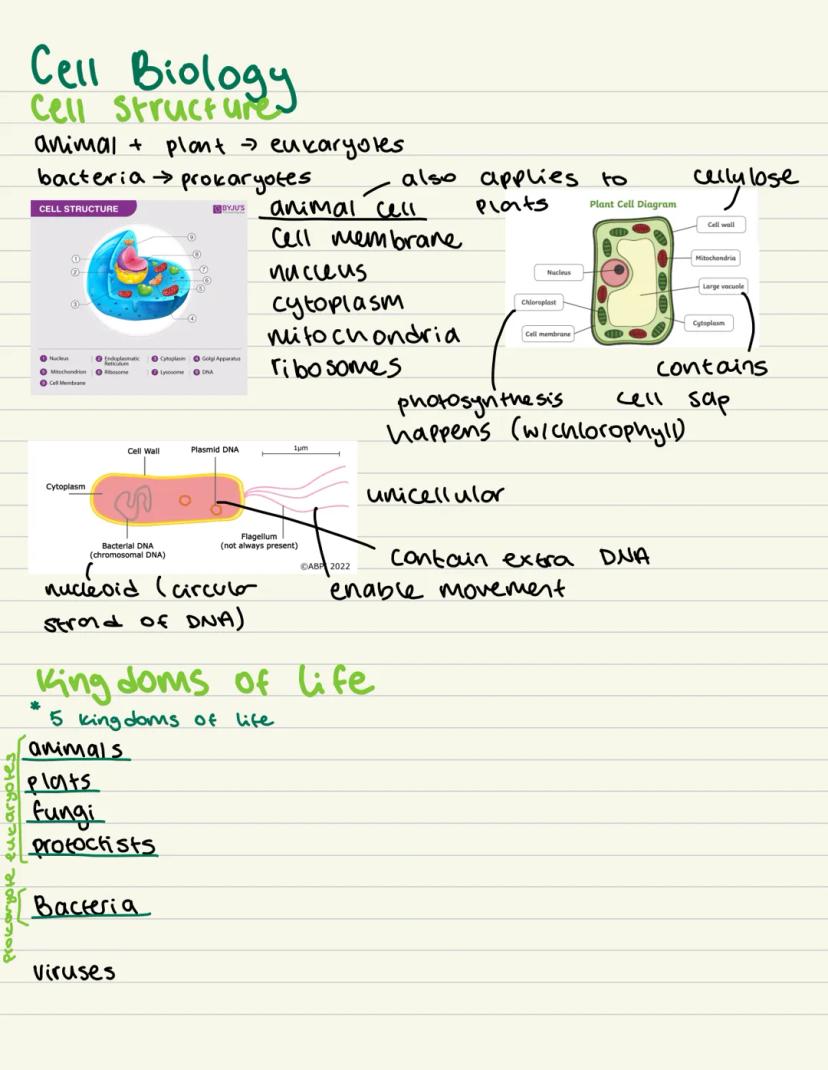 Cell Biology
Cell Structure
animal + plant → eukaryotes
bacteria → prokaryotes
also applies to plats
cellulose
CELL STRUCTURE
BYJU'S
1
2
3
9
8
7
6
5
4
1 Nucleus
2 Endoplasmatic Reticulum
3 Cytoplasm
4 Golgi Apparatus
5 Mitochondrion
6 Ribosome
7 Lysosome
8 DNA
9 Cell Membrane
animal cell
cell membrane
nucleus
cytoplasm
mitochondria
ribosomes
Plant Cell Diagram
Cell wall
Mitochondria
Nucleus
Large vacuole
Chloroplast
Cytoplasm
Cell membrane
contains
cell sap
photosynthesis
happens (w/chlorophyll)
Cell Wall
Plasmid DNA
1µm
Cytoplasm
Bacterial DNA
(chromosomal DNA)
Flagellum
(not always present)
©ABPI 2022
unicellular
contain extra DNA
enable movement
nucleoid (circular
strand of DNA)
Kingdoms of life
* 5 kingdoms of life
eucaryotes
animals
plats
fungi
protoctists
prokaryote
Bacteria
viruses